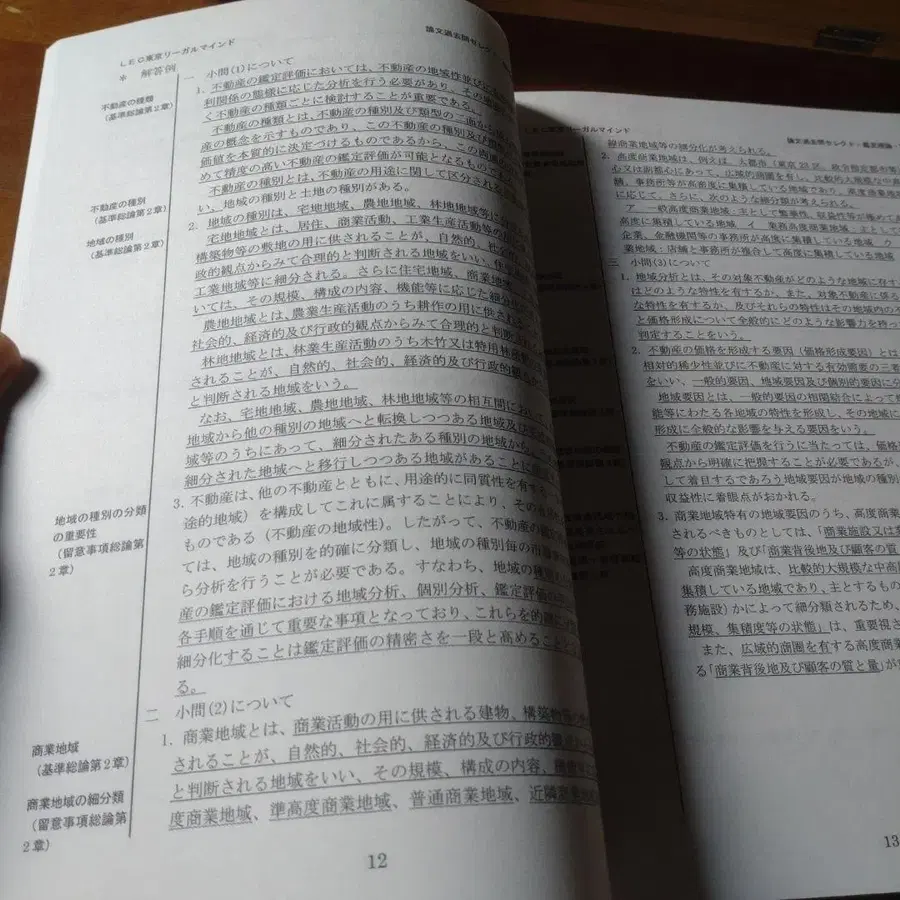 LEC東京リーガルマインド
論文過去問セレクト
＊ 解答例
不動産の種類
(基準総論第2章)
不動産の種別
(基準総論第2章)
地域の種別
(基準総論第2章)
地域の種別の分類
の重要性
(留意事項総論第
2章)
商業地域
(基準総論第2章)
商業地域の細分類
(留意事項総論第
2章)
一 小問(1)について
1. 不動産の鑑定評価においては、不動産の地域性並びに
利関係の態様に応じた分析を行う必要があり、その
く不動産の種類ごとに検討することが重要である。
不動産の種類とは、不動産の種別及び類型の二面から
産の概念を示すものであり、この不動産の種別及び類型
価値を本質的に決定づけるものであるから、この両面の
めて精度の高い不動産の鑑定評価が可能となるもので
不動産の種別とは、不動産の用途に関して区分される
い、地域の種別と土地の種別がある。
2. 地域の種別は、宅地地域、農地地域、林地地域等に
宅地地域とは、居住、商業活動、工業生産活動等の
構築物等の敷地の用に供されることが、自然的、社会
政的観点からみて合理的と判断される地域をいい、住宅
工業地域等に細分される。さらに住宅地域、商業地域
いては、その規模、構成の内容、機能等に応じた細分
農地地域とは、農業生産活動のうち耕作の用に供され
社会的、経済的及び行政的観点からみて合理的と判断
林地地域とは、林業生産活動のうち木竹又は特用林産物
されることが、自然的、社会的、経済的及び行政的観点
と判断される地域をいう。
なお、宅地地域、農地地域、林地地域等の相互間において
地域から他の種別の地域へと転換しつつある地域及び
域等のうちにあって、細分されたある種別の地域から、
細分された地域へと移行しつつある地域があることに
3. 不動産は、他の不動産とともに、用途的に同質性を有する
途的地域）を構成してこれに属することにより、その
ものである（不動産の地域性）。したがって、不動産の鑑
ては、地域の種別を的確に分類し、地域の種別毎の市場
ら分析を行うことが必要である。すなわち、地域の種別
産の鑑定評価における地域分析、個別分析、鑑定評価の
各手順を通じて重要な事項となっており、これらを的確に
細分化することは鑑定評価の精密さを一段と高めること
る。
二 小問(2)について
1. 商業地域とは、商業活動の用に供される建物、構築物
されることが、自然的、社会的、経済的及び行政的観点
と判断される地域をいい、その規模、構成の内容、機能
度商業地域、準高度商業地域、普通商業地域、近隣
12
LEC東京リーガルマインド
論文過去問セレクト・鑑定理論
線商業地域等の細分化が考えられる。
2. 高度商業地域は、例えば、大都市（東京23区、政令指定都市等
心又は副都心にあって、広域的商圏を有し、比較的大規模な中高
舗、事務所等が高密度に集積している地域であり、高度商業地域
に応じて、さらに、次のような細分類が考えられる。
ア 一般高度商業地域・主として繁華性、収益性等が極めて
高度に集積している地域 イ 業務高度商業地域・主として
企業、金融機関等の事務所が高度に集積している地域 ウ
業地域・店舗と事務所が複合して高度に集積している地域
三 小問(3)について
1. 地域分析とは、その対象不動産がどのような地域に存す
はどのような特性を有するか、また、対象不動産に係る
な特性を有するか、及びそれらの特性はその地域内の不
と価格形成について全般的にどのような影響力を持っ
判定することをいう。
2. 不動産の価格を形成する要因（価格形成要因）とは
相対的稀少性並びに不動産に対する有効需要の三者
をいい、一般的要因、地域要因及び個別的要因に分
地域要因とは、一般的要因の相関結合によって規
能等にわたる各地域の特性を形成し、その地域に
形成に全般的な影響を与える要因をいう。
不動産の鑑定評価を行うに当たっては、価格形
観点から明確に把握することが必要であるが、
して着目するであろう地域要因が地域の種別
収益性に着眼点がおかれる。
3. 商業地域特有の地域要因のうち、高度商業
されるべきものとしては、「商業施設又は業
等の状態」及び「商業背後地及び顧客の質
高度商業地域は、比較的大規模な中高
集積している地域であり、主とするもの
務施設）かによって細分類されるため、
規模、集積度等の状態」は、重要視さ
また、広域的商圏を有する高度商業
る「商業背後地及び顧客の質と量」が
13